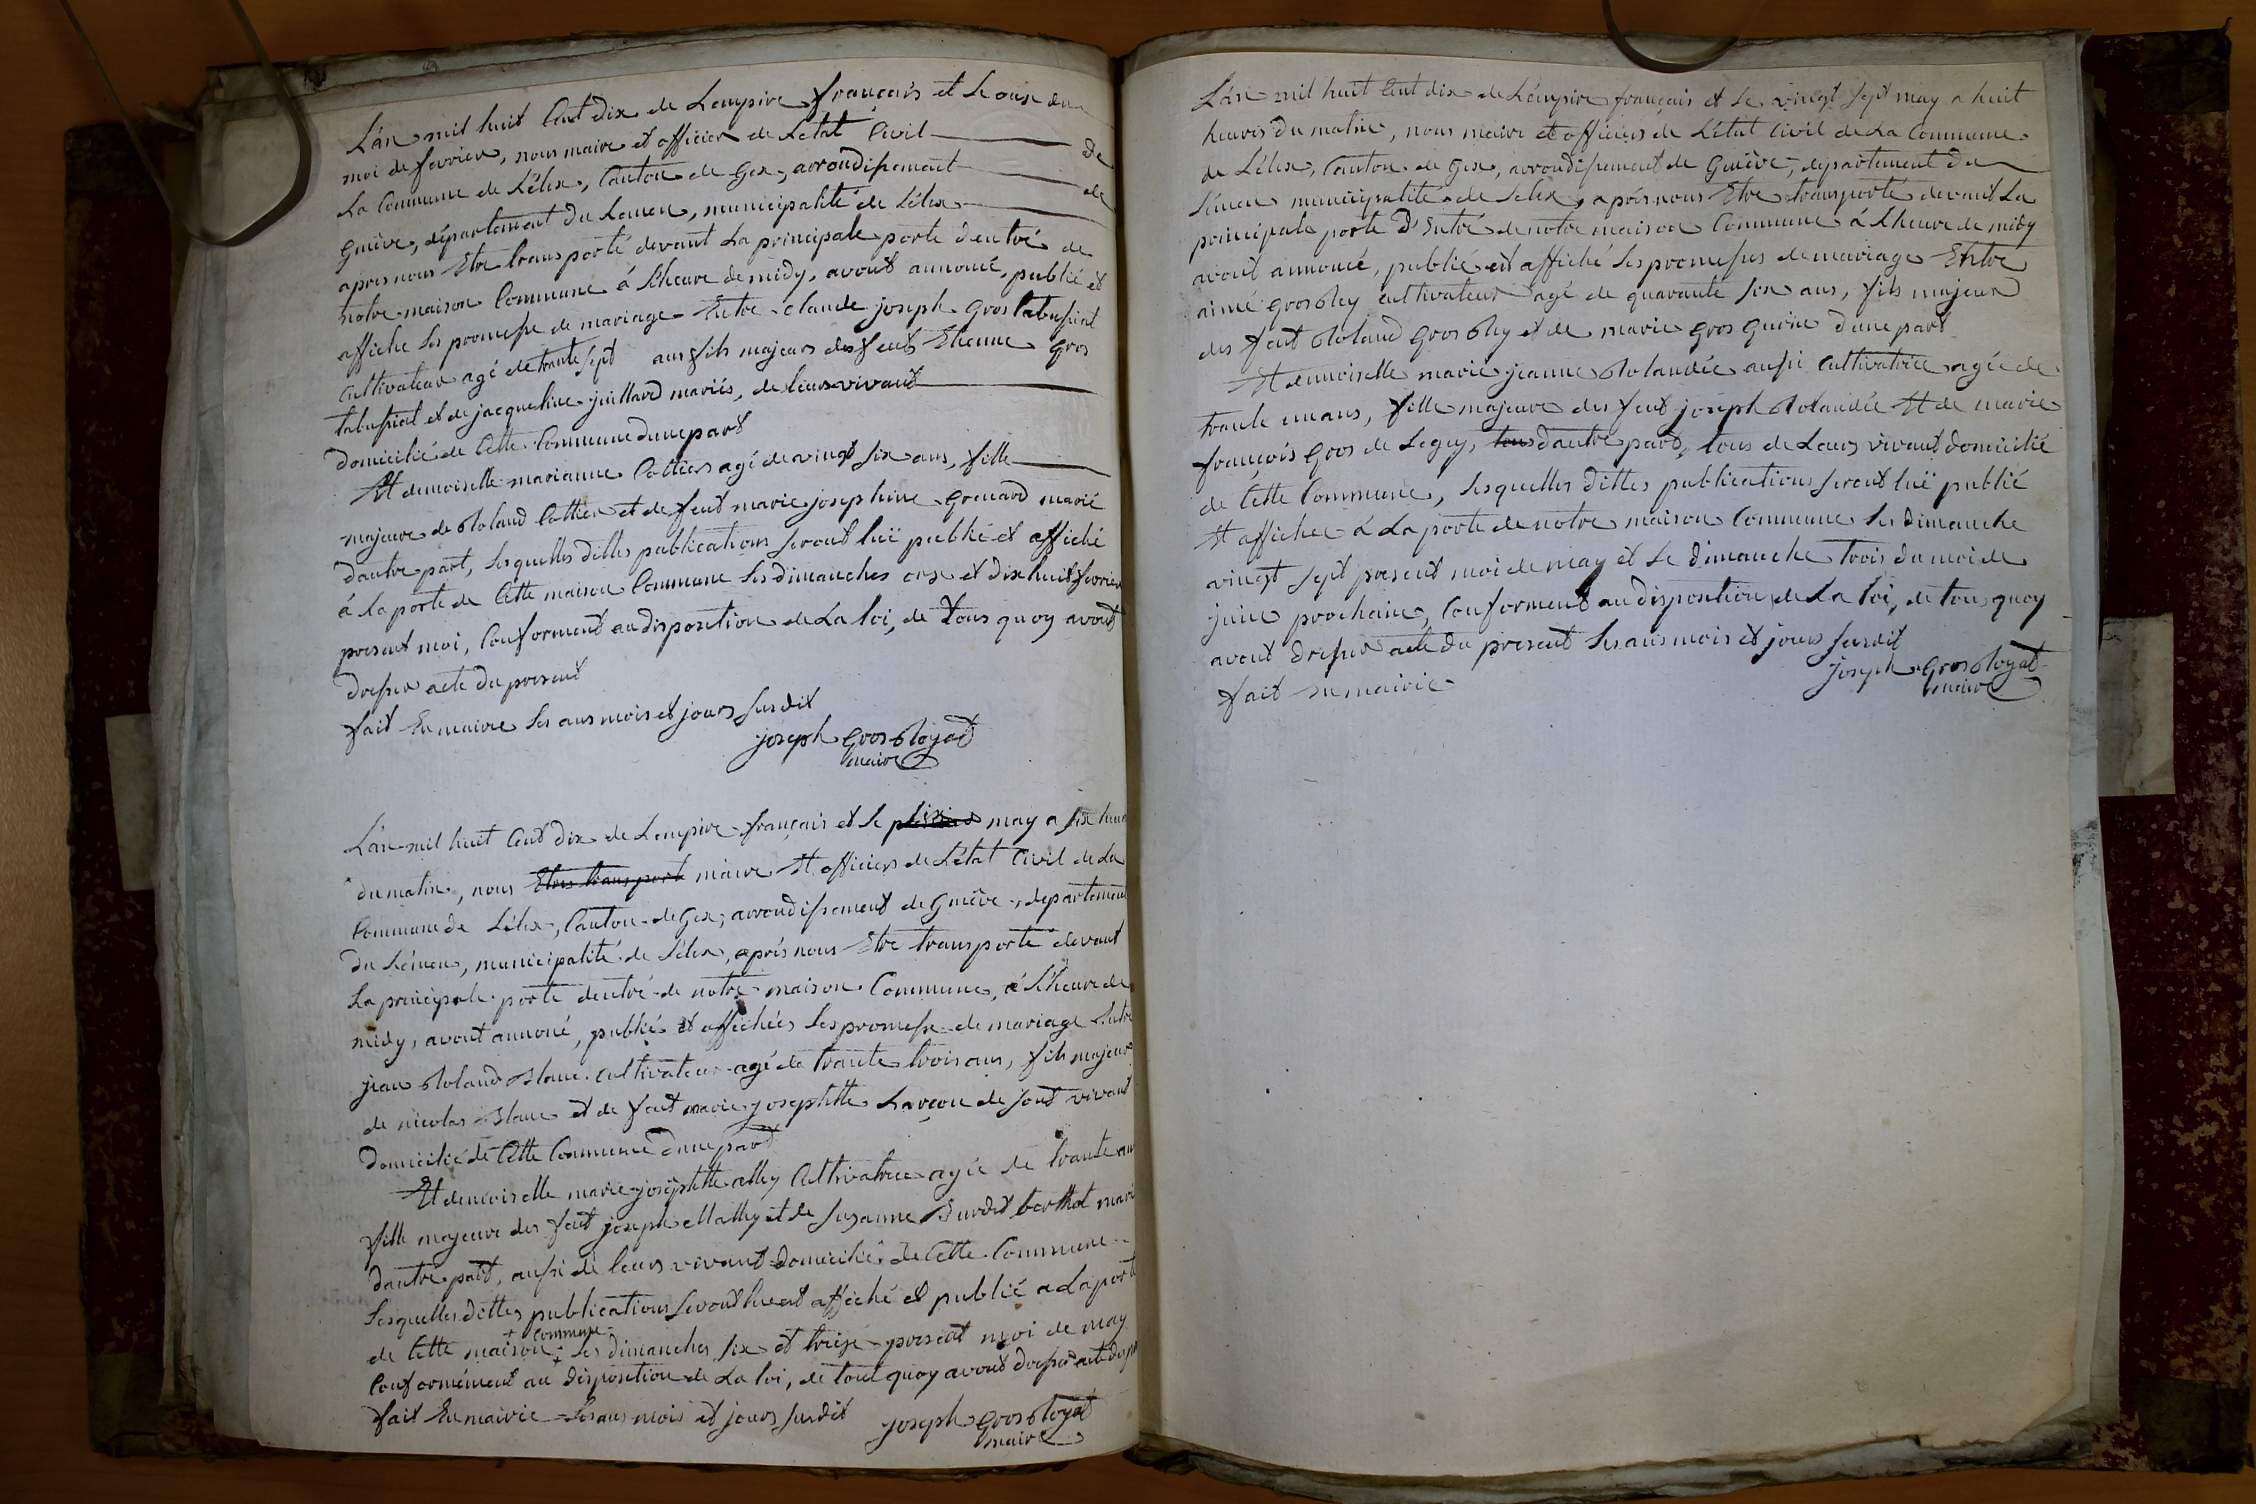 L'an mil huit Cent dix de Lempire français et Le onze du
moi de fevrier, nous maire et officier de Letat Civil de
La Commune de Lélex, Canton de Gex, arrondissement de
Genêve, département du Leman, municipalité de Lélex
apres nous Etre transporté devant La principale porte d'entré de
notre maison Commune á L'heure de midy, avont annoncé, publié et
affiche Les promesse de mariage Entre claude joseph Gros tabussiat
Cultivateur agé de trante sept ans fils majeur des feut Etienne Gros
tabussiat et de jacqueline juillard mariés, de leurs vivant
domicilié de Cette Commune dune part
Et demoiselle marianne Cottier agé de vingt six ans, fille
majeure de Roland Cottier et de feut marie josephine Grenard marié
dautre part, Lesquelles dittes publications seront luë publié et affiché
á La porte de Cette maison Commune Les dimanches onze et dix huit fevrier
present moi, Conforment au disposition de La loi, de tous quoy avont
dresser acte du present
fait En mairie Les ans mois et jours susdit
joseph Gros Royat
maire
L'an mil huit Cent dix de Lempire français et Le may a six heur
du matin, nous Etres transporté maire Et officiers de L'état Civil de La
Commune de Lélex, Canton de Gex, arrondissement de Genêve, departement
du Léman, municipalité de Lélex, aprés nous Etre transporté devant
La principale porte dentré de notre maison Commune, á L'heure de
midy, avont annoncé, publiés et affichées Les promesse de mariage Entre
jean Roland Blanc Cultivateur agé de trante trois ans, fils majeur
de nicolas Blanc et de feut marie josephtte Lançon de sont vivant
domicilié de Cette Commune dune part
Et demoiselle marie josephtte allley Cultivatrice agée de trante ans
fille majeure des feut joseph Mallley et de Suzanne Burdet berthet marié
dautre part, aussi de leurs vivant domicilié de Cette Commune
Lesquelles dittes publications seront lu et affiché et publié a La porte
de Cette maison + Commune Les dimanches six et treize present moi de may
Conformément au disposition de La loi, de tout quoy avont dresser acte du
fait En mairie Les ans mois et jours susdit joseph Gros Royat
maire
L'an mil huit Cent dix de L'émpire français et Le vingt sept may a huit
heures du matin, nous maire et officiers de L'état Civil de La Commune
de Lélex, Canton de Gex, arrondissement de Genêve, departement du
Léman municipalité de Lelex, aprés nous Etre transporté devant La
principale porte D'Entré de notre maison Commune á L'heure de midy
avont annoncé, publié et affiché Les promesses de mariage Entre
aimé Grosbley Cultivateur agé de quarante six ans, fils majeur
des feut Roland Grosbley et de marie Gros Gurin dune part
Et demoiselle marie jeanne Rolandée aussi Cultivatrice agée de
trante un ans, fille majeure des feut joseph Rolandée Et de marie
françois Gros de Legey, tous dautre part, tous de Leurs vivant domicilié
de Cette Commune, Lesquelles dittes publications seront luë publié
Et affichée á La porte de notre maison Commune Les dimanche
vingt sept present moi de may et Le dimanche trois du moi de
juin prochain, Conforment au disposition de La loi, de tous quoy
avont dresser acte du present Les ans mois et jours susdit
fait En mairie joseph Gros Royat
maire